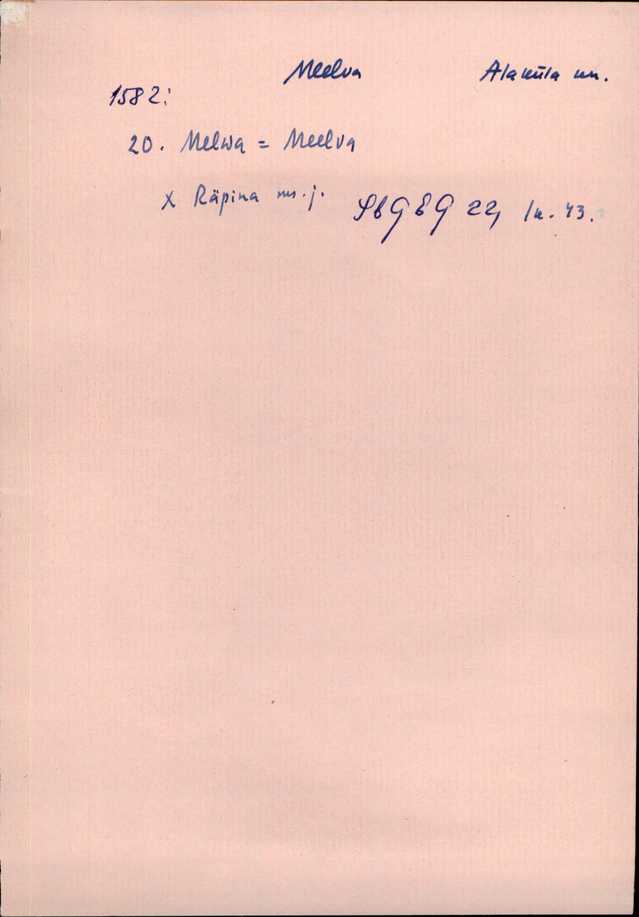 Meelva Alaküla mn.
1582:
20. Melwa = Meelva
X Räpina ms. j. SbGEG 22, lk. 43.